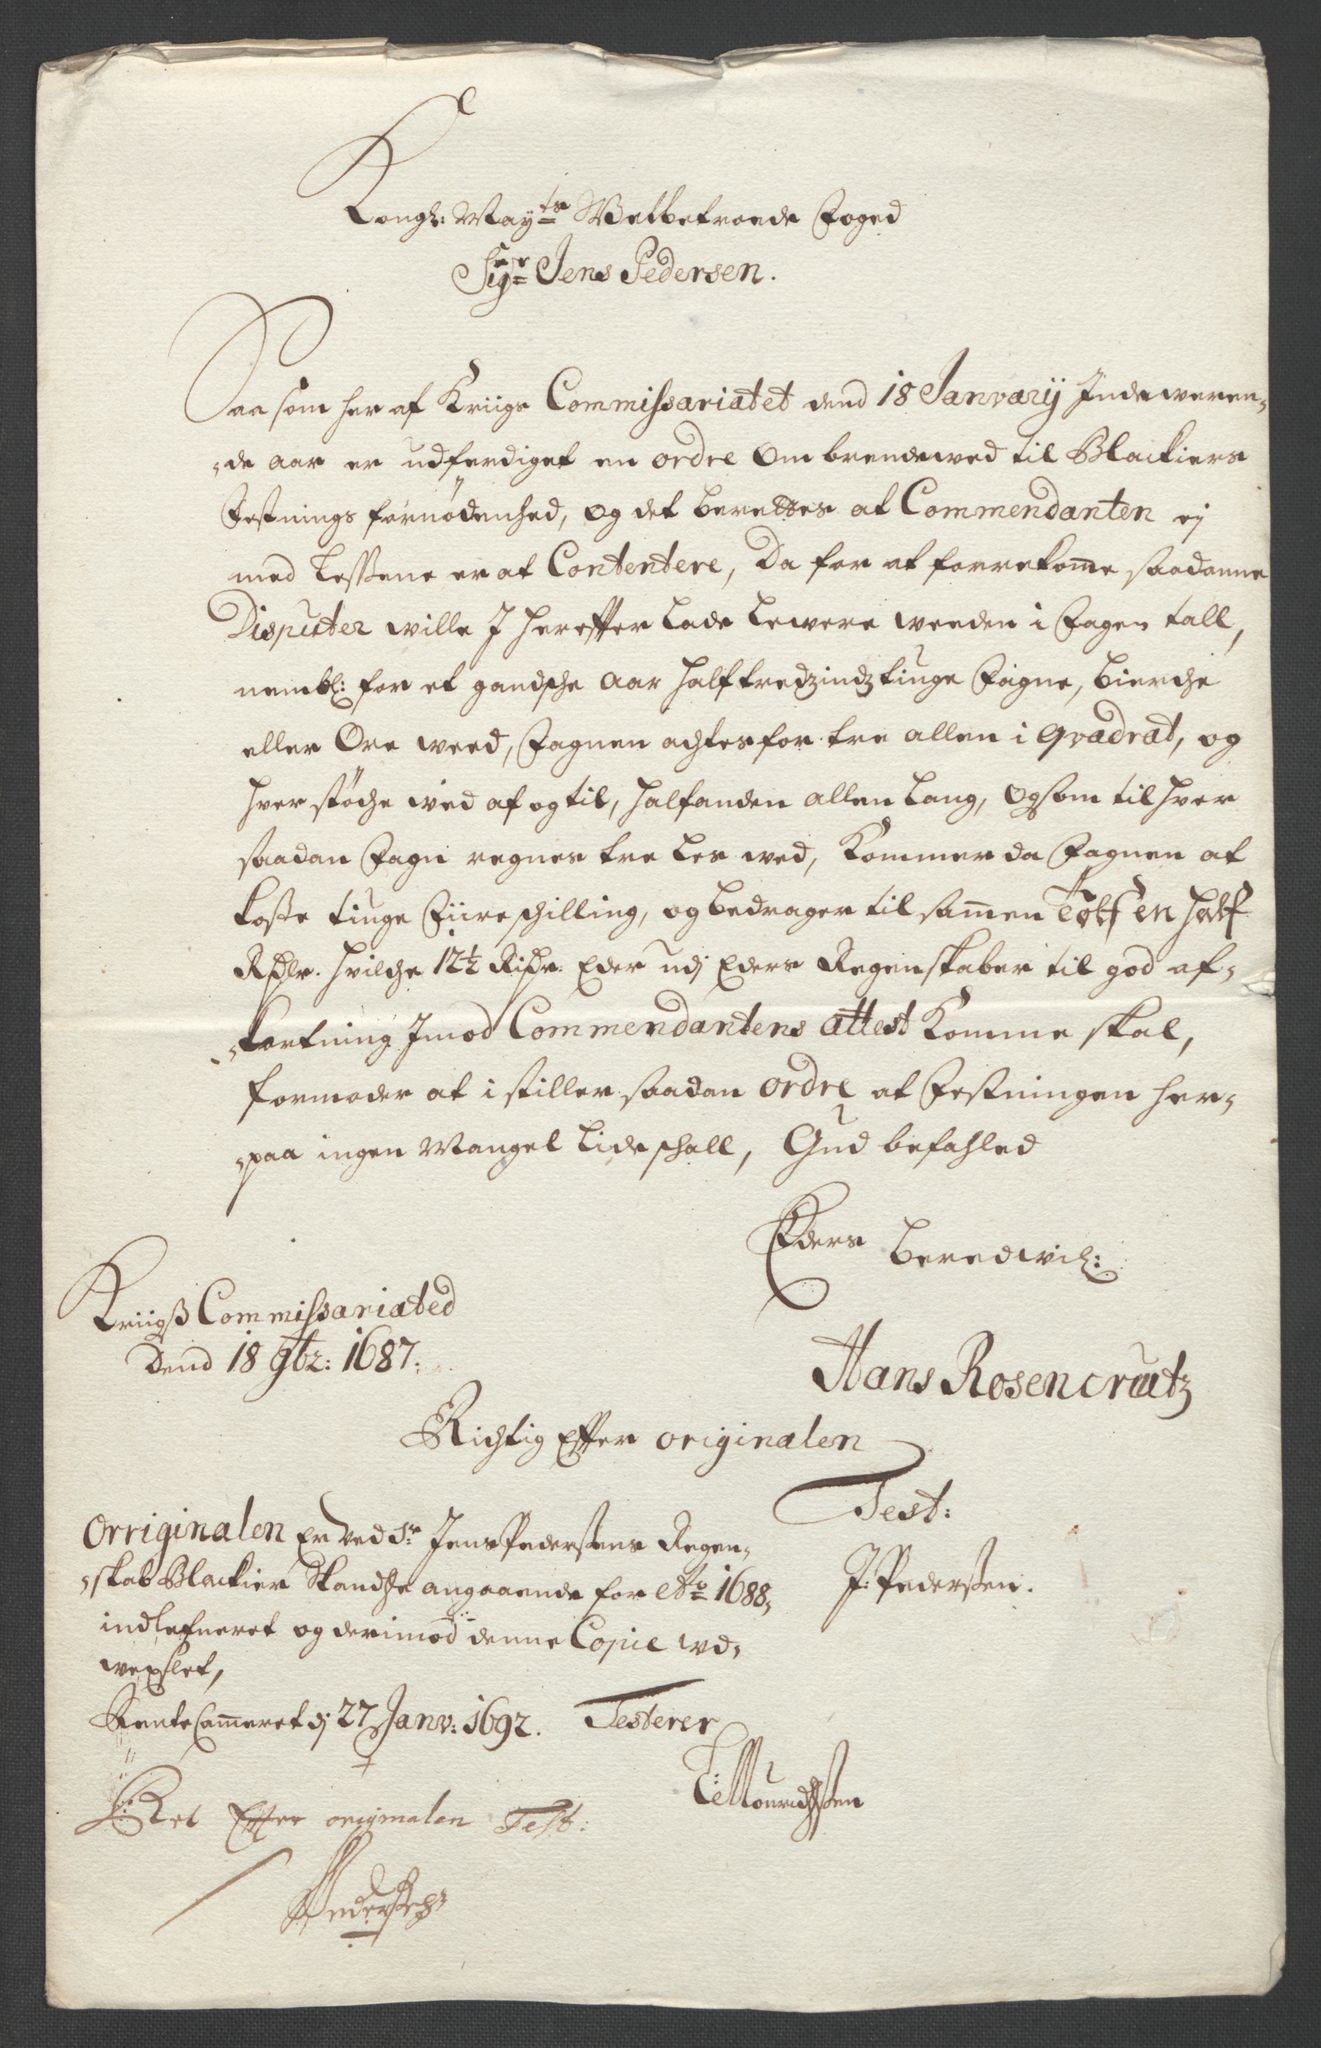 Kongl: Mayts Welbetroede Foged
Sigr Jens Pedersen.
Saa som her af Kriigs Commissariatet dend 18 Janvarij Indeweren-
-de aar er udferdiget en ordre Om brendewed til Blackiers
Festnings fornödenhed, og det berettes at Commendanten ej
med Lessene er at Contentere, Da for at forrekomme saadanne
Disputer wille J herefter Lade Lewere weeden i Fagen tall,
nembl: for et gandsche Aar halftredzindztiuge Fagne, bierche
eller Ore weed, Fagnen achtes for tre allen i Qvadrat, og
hver støche wed af og til, halfanden allen Lang, Og som til hver
saadan Fagn regnes tre Les wed, Kommer da Fagnen at
koste tiuge Fiire schilling, og bedrager til sammen Tolf en half
Rdlr. hvilche 12½ Rixdr. Eder udj Eders Regenskaber til god af-
-kortning Jmod Commendantens attest Komme skal,
formoder at i stiller saadan ordre at Festningen her-
-paa ingen Mangel Lide schall, Gud befahled
Eders beredwil:
Kriigß Commissariated
Dend 18 9br: 1687.
Hans Rosencrutz
Richtig Efter originalen
Test:
J: Pederßen.
Orriginalen Er ved Sr Jens Pederßens Regen-
-skab Blackier Skandße angaaende for Ao 1688,
indlefneret og derimod denne Copie wd-
wexlet,
RenteCammeret dj 27 Janv: 1692. Testerer
Mouridßen
Ret Efter originalen Test:
Pederßen